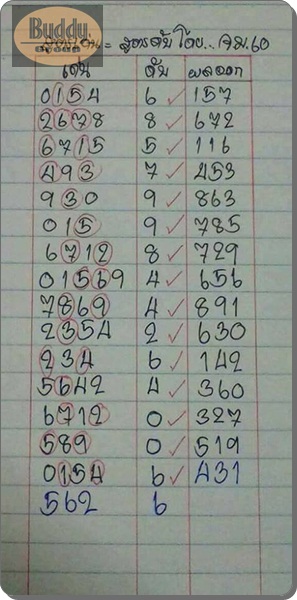 Buddy.
= สูตรดับ โดย.. จ.ม.60
เด่น ดับ ผลออก
0154 6 ✓ 157
2678 8 ✓ 672
6715 5 ✓ 116
493 7 ✓ 453
930 9 ✓ 863
015 9 ✓ 785
6712 8 ✓ 729
01569 4 ✓ 656
7869 4 ✓ 891
2354 2 ✓ 630
234 6 ✓ 142
5642 4 ✓ 360
6712 0 ✓ 327
589 0 ✓ 519
0154 6 ✓ 431
562 6